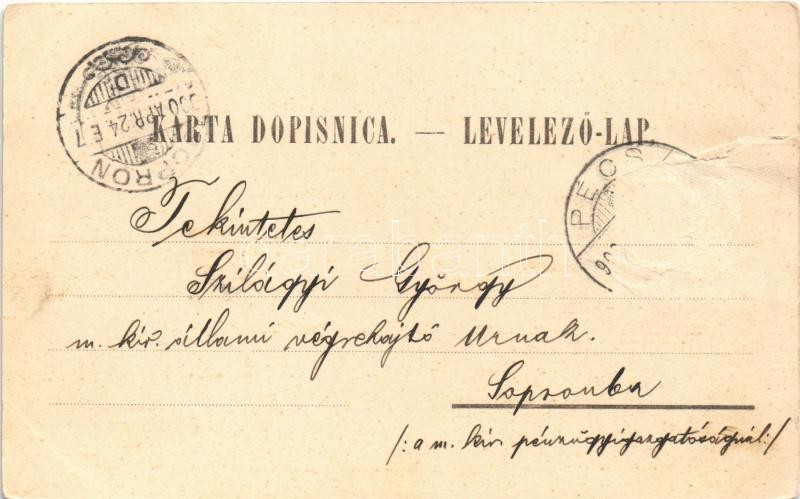 KARTA DOPISNICA. — LEVELEZŐ-LAP.
SOPRON
900 APR. 24 E 7
D
PÉCS
900
Tekintetes
Szilágyi György
m. kir. állami végrehajtó Urnak.
Sopronba
/: a m. kir. pénzügyigazgatóságnál :/
Darabanth